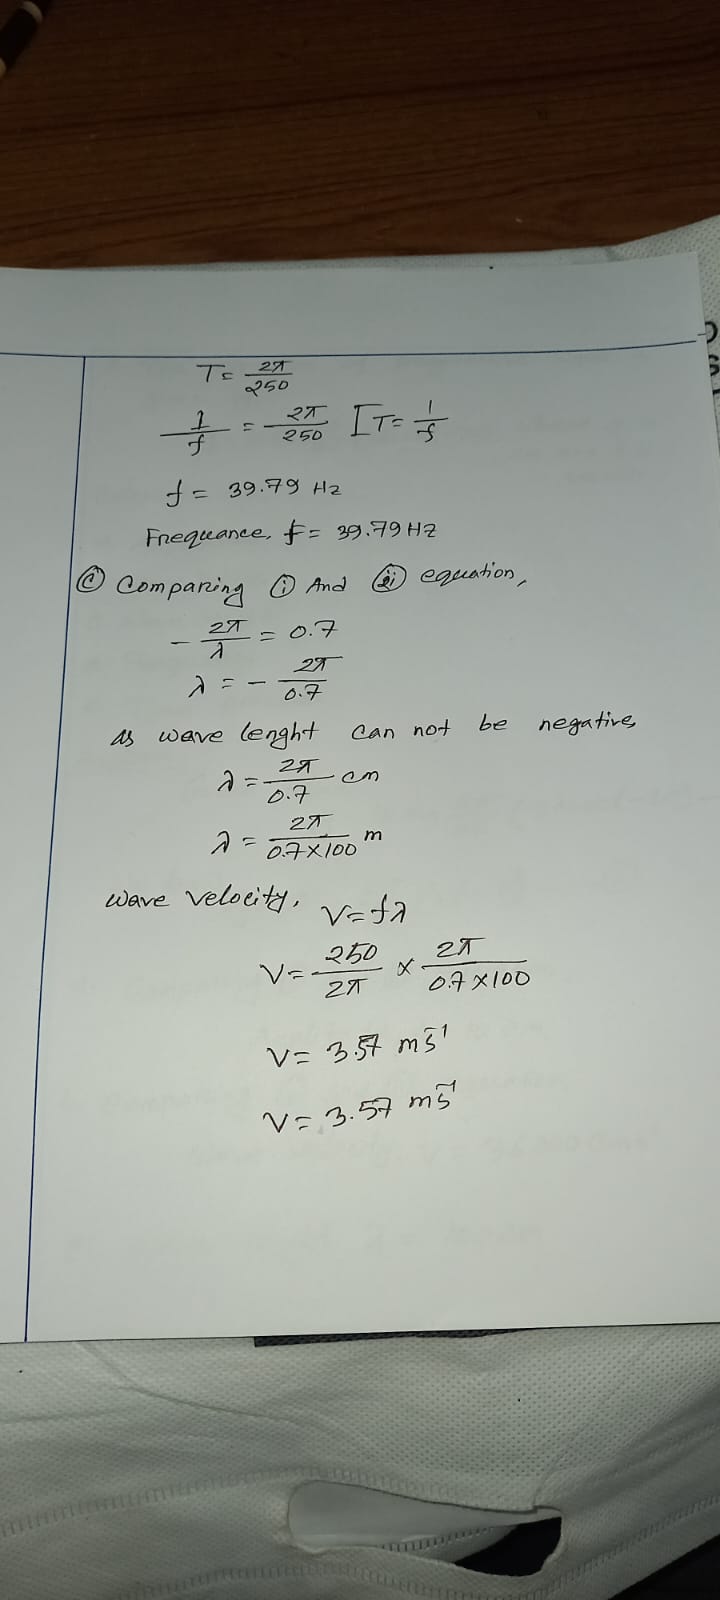 T = 2π/250
1/f = 2π/250 [T = 1/f
f = 39.79 Hz
Frequeance, f = 39.79 HZ
(c) Comparing (i) And (ii) equation,
- 2π/λ = 0.7
λ = - 2π/0.7
as wave lenght can not be negative,
λ = 2π/0.7 cm
λ = 2π/0.7×100 m
wave velocity, V = fλ
V = 250/2π × 2π/0.7×100
V = 3.57 ms⁻¹
V = 3.57 ms⁻¹